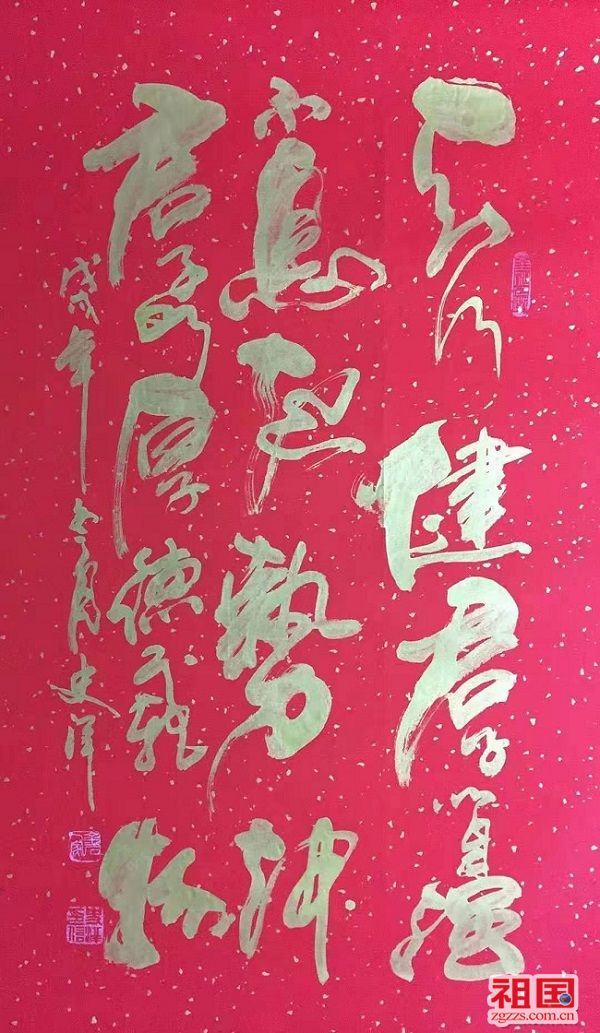 天行健君子以自强
不息地勢坤
君子以厚德載物
戌年 月史
祖国
zgzzs.com.cn